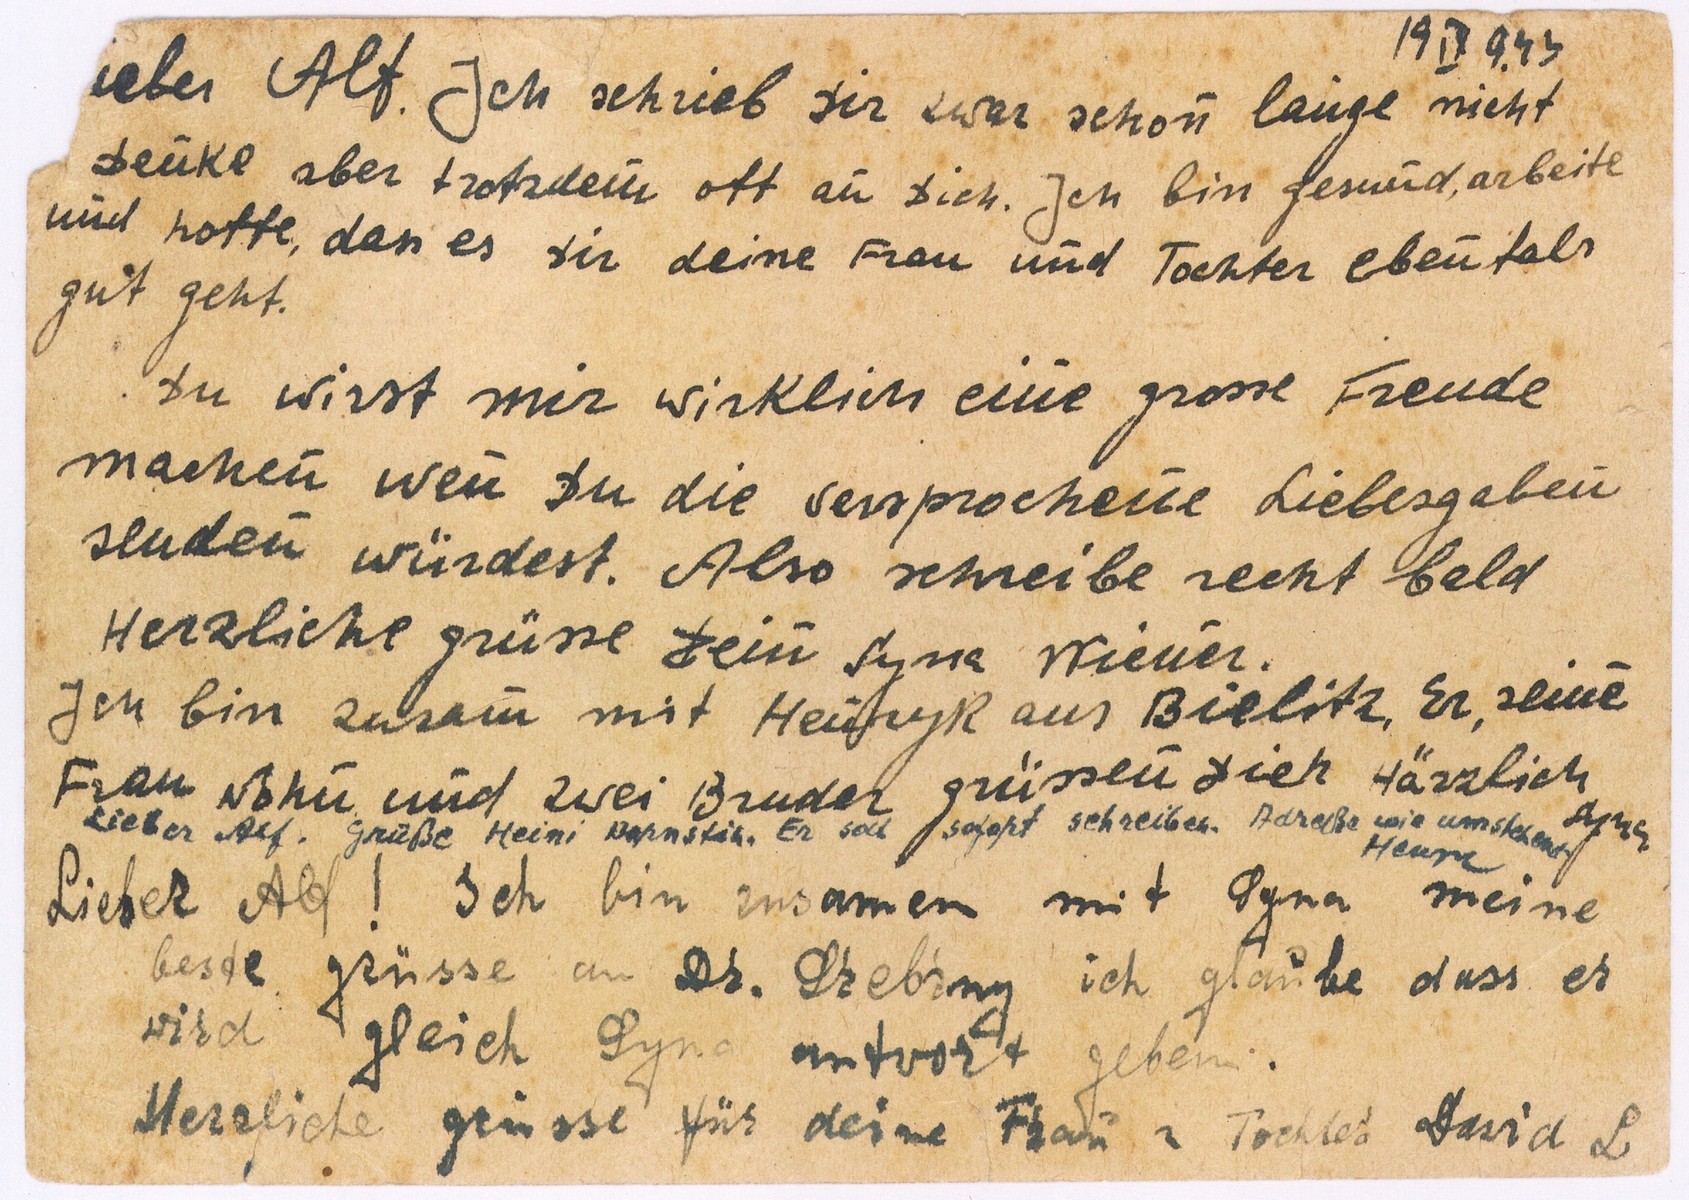 19 IX 943
ieber Alf. Ich schrieb Dir zwar schon lange nicht
Denke aber trotzdem oft an Dich. Ich bin gesund, arbeite
und hoffe, dass es Dir deine Frau und Tochter ebenfals
gut geht.
Du wirst mir wirklich eine grosse Freude
machen wen Du die versprochene Liebesgaben
senden würdest. Also schreibe recht bald
Herzliche grüsse Dein Syna Wiener.
Ich bin zusam mit Henryk aus Bielitz, Er, seine
Frau und zwei Bruder grüssen Dich Härzlich
Syna.
Lieber Alf. Grüße Heini. Er soll sofort schreiben. Adreße wie umstehend
Lieber Alf! Ich bin zusamen mit Syna meine
beste grüsse an Dr. Srebrny ich glaube dass er
wird gleich Syna antvort geben.
Herzliche grüsse für deine Frau Tochter David L